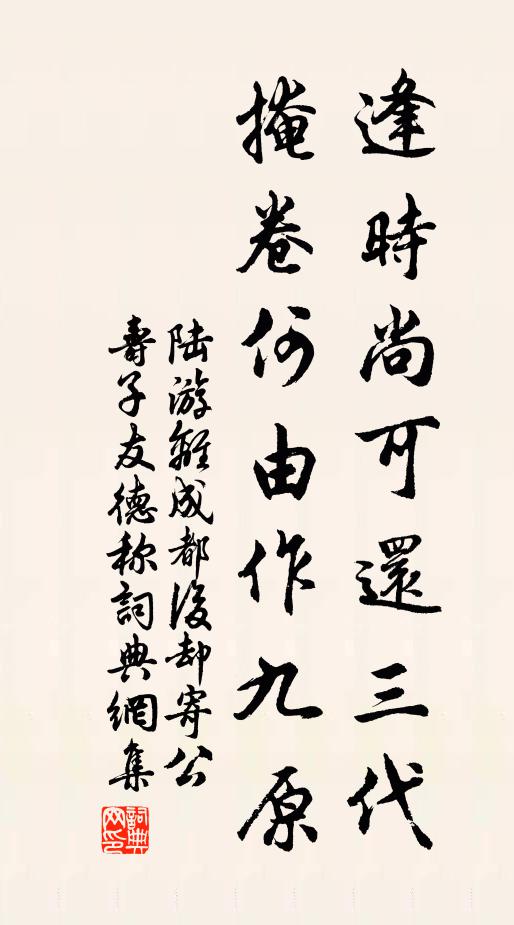 逢時尚可還三代
掩卷何由作九原
陸游離成都後却寄公
壽子友德称詞典網集
詞典网印